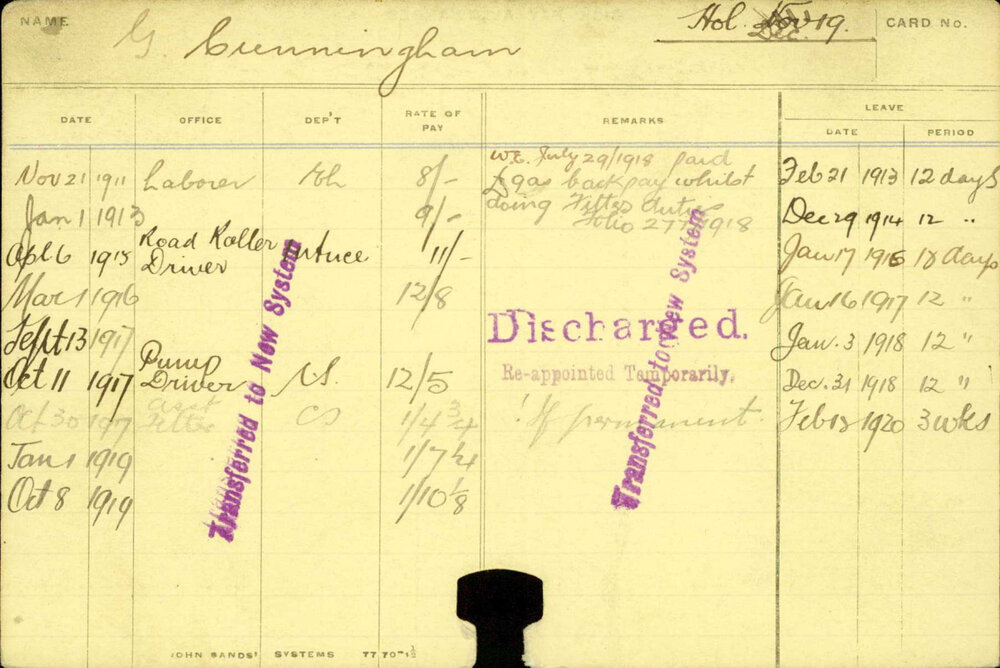 NAME
G. Cunningham
Hol. Nov 19.
Dec.
CARD No.
DATE OFFICE DEP'T RATE OF PAY REMARKS LEAVE
DATE PERIOD
Nov 21 1911 Laborer 8/-
Jan 1 1913 9/-
Apl 6 1915 Road Roller Driver 11/-
Mar 1 1916 12/8
Sept 13 1917
Oct 11 1917 Pump Driver CS. 12/5
Oct 30 1917 Asst Fitter CS 1/4 3/4
Jan 1 1919 1/7 1/4
Oct 8 1919 1/10 1/8
W.E. July 29/1918 paid
gas back pay whilst
doing Fitters duties
Folio 277 1918
Discharged.
Re-appointed Temporarily.
If permanent
Transferred to New System
Transferred to New System
Feb 21 1913 12 days
Dec 29 1914 12 "
Jan 17 1916 18 days
Jan 16 1917 12 "
Jan. 3 1918 12 "
Dec. 31 1918 12 "
Feb 13 1920 3 wks
JOHN SANDS' SYSTEMS 7770-1½